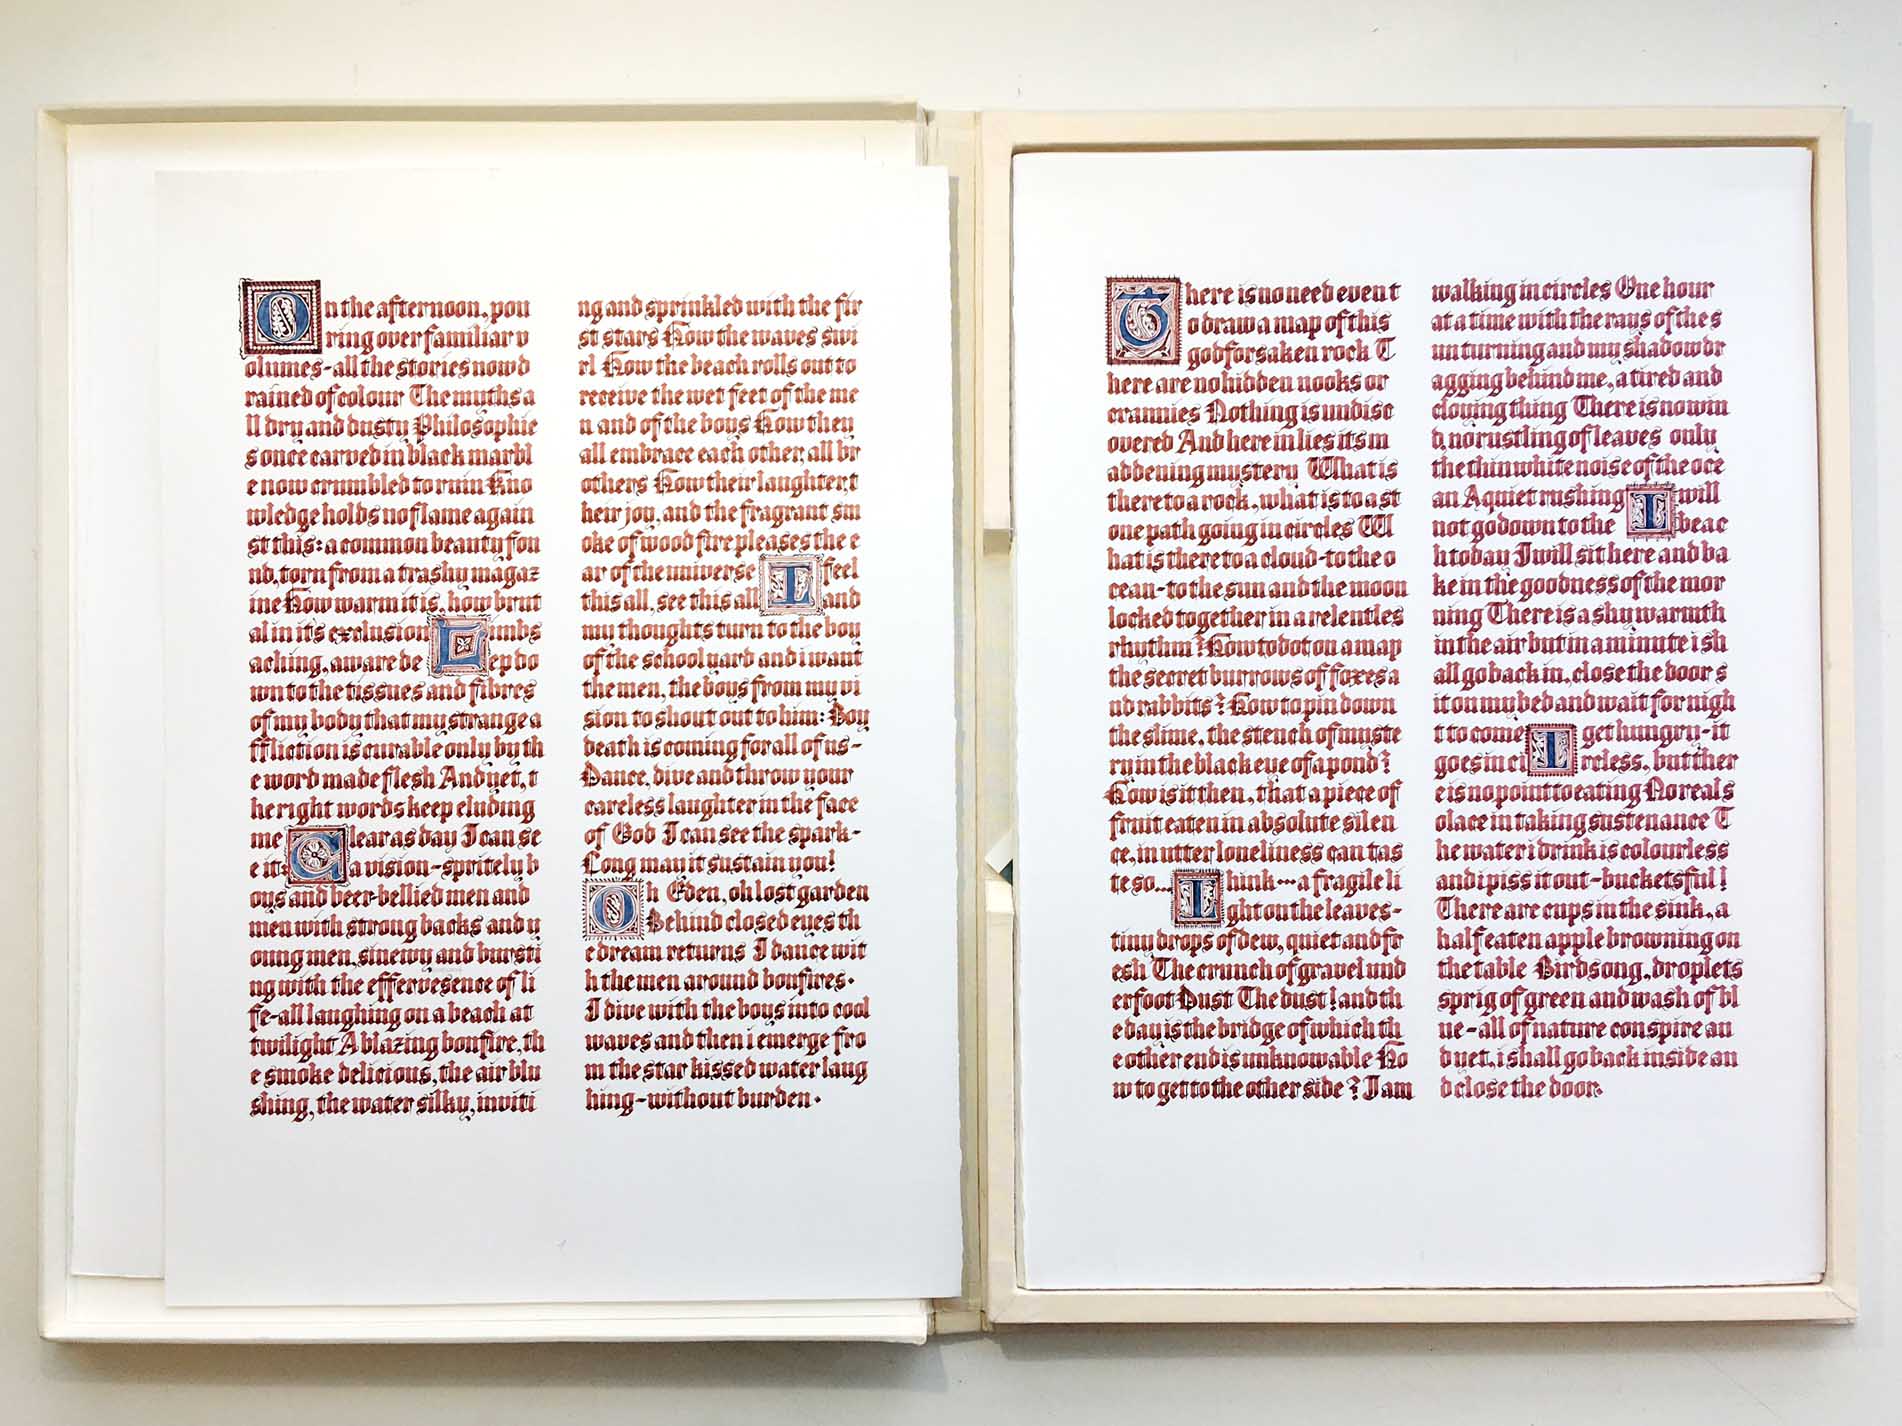 On the afternoon, pou
ring over familiar v
olumes-all the stories now d
rained of colour The myths a
ll dry and dusty Philosophie
s once carved in black marbl
e now crumbled to ruin Kno
wledge holds no flame again
st this: a common beauty fou
nd, torn from a trashy magaz
ine How warm it is, how brut
al in its exclusion Limbs
aching, aware de ep do
wn to the tissues and fibres
of my body that my strange a
ffliction is curable only by th
e word made flesh And yet, t
he right words keep eluding
me Clear as day I can se
e it: a vision-spritely b
oys and beer-bellied men and
men with strong backs and y
oung men, sinewy and bursti
ng with the effervesence of li
fe-all laughing on a beach at
twilight A blazing bonfire, th
e smoke delicious, the air blu
shing, the water silky, inviti
ng and sprinkled with the fir
st stars How the waves swi
rl How the beach rolls out to
receive the wet feet of the me
n and of the boys How they
all embrace each other, all br
others How their laughter, t
heir joy, and the fragrant sm
oke of wood fire pleases the e
ar of the universe I feel
this all, see this all and
my thoughts turn to the boy
of the school yard and i want
the men, the boys from my vi
sion to shout out to him: Boy
death is coming for all of us-
Dance, dive and throw your
careless laughter in the face
of God I can see the spark-
Long may it sustain you!
Oh Eden, oh lost garden
Behind closed eyes th
e dream returns I dance wit
h the men around bonfires.
I dive with the boys into cool
waves and then i emerge fro
m the star kissed water laug
hing-without burden.
There is no need even t
o draw a map of this
godforsaken rock T
here are no hidden nooks or
crannies Nothing is undisc
overed And herein lies its m
addening mystery What is
there to a rock, what is to a st
one path going in circles W
hat is there to a cloud-to the o
cean-to the sun and the moon
locked together in a relentles
rhythm? How to dot on a map
the secret burrows of foxes a
nd rabbits? How to pin down
the slime, the stench of myste
ry in the black eye of a pond?
How is it then, that a piece of
fruit eaten in absolute silen
ce, in utter loneliness can tas
te so... I hink... a fragile li
ght on the leaves-
tiny drops of dew, quiet and fr
esh The crunch of gravel und
erfoot Dust The dust! and th
e day is the bridge of which th
e other end is unknowable Ho
w to get to the other side? I am
walking in circles One hour
at a time with the rays of the s
un turning and my shadow dr
agging behind me, a tired and
cloying thing There is no win
d, no rustling of leaves only
the thin white noise of the oce
an A quiet rushing I will
not go down to the beac
h today I will sit here and ba
ke in the goodness of the mor
ning There is a shy warmth
in the air but in a minute i sh
all go back in, close the door s
it on my bed and wait for nigh
t to come I get hungry-it
goes in ci rcless, but ther
e is no point to eating No real s
olace in taking sustenance T
he water i drink is colourless
and i piss it out-bucketsful!
There are cups in the sink, a
half eaten apple browning on
the table Birdsong, droplets
sprig of green and wash of bl
ue-all of nature conspire an
d yet, i shall go back inside an
d close the door.